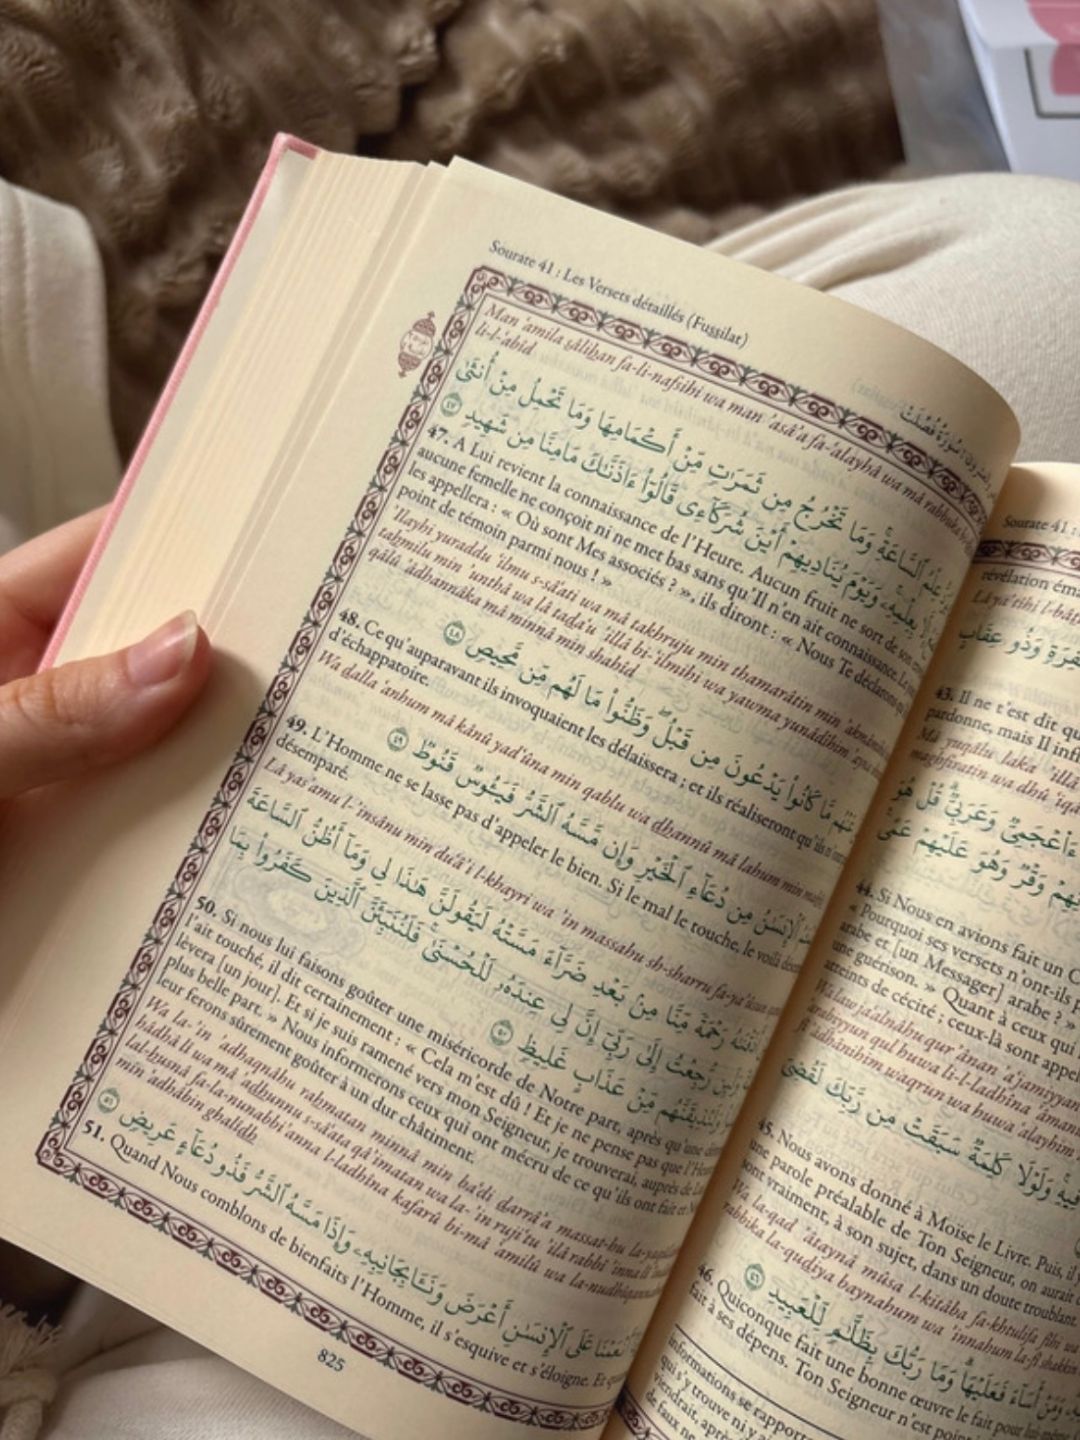 Sourate 41 : Les Versets détaillés (Fuṣṣilat)
سُورَةُ فُصِّلَتْ
Man ʿamila ṣâliḥan fa-li-nafsihi wa man ʾasâʾa fa-ʿalayhâ wa mâ rabbuka
li-l-ʿabîd
عِلْمُ ٱلسَّاعَةِ وَمَا تَخْرُجُ مِن ثَمَرَٰتٍ مِّنْ أَكْمَامِهَا وَمَا تَحْمِلُ مِنْ أُنثَىٰ
بِعِلْمِهِۦ وَيَوْمَ يُنَادِيهِمْ أَيْنَ شُرَكَآءِى قَالُوٓاْ ءَاذَنَّـٰكَ مَامِنَّا مِن شَهِيدٍ ٤٧
47. A Lui revient la connaissance de l'Heure. Aucun fruit ne sort de son
aucune femelle ne conçoit ni ne met bas sans qu'Il n'en ait connaissance. Le
les appellera : « Où sont Mes associés ? », ils diront : « Nous Te déclarons
point de témoin parmi nous ! »
ʾIlayhi yuraddu ʿilmu s-sâʿati wa mâ takhruju min thamarâtin min ʾakmâmihâ
taḥmilu min ʾunthâ wa lâ taḍaʿu ʾillâ bi-ʿilmihi wa yawma yunâdîhim ʾayna
qâlû ʾâdhannâka mâ minnâ min shahîd
مَّا كَانُواْ يَدْعُونَ مِن قَبْلُ وَظَنُّواْ مَا لَهُم مِّن مَّحِيصٍ ٤٨
48. Ce qu'auparavant ils invoquaient les délaissera ; et ils réaliseront qu'ils n'ont
d'échappatoire.
Wa ḍalla ʿanhum mâ kânû yadʿûna min qablu wa dhannû mâ lahum min
ٱلْإِنسَـٰنُ مِن دُعَآءِ ٱلْخَيْرِ وَإِن مَّسَّهُ ٱلشَّرُّ فَيَـُٔوسٌ قَنُوطٌ ٤٩
49. L'Homme ne se lasse pas d'appeler le bien. Si le mal le touche, le voilà
désemparé.
Lâ yasʾamu l-ʾinsânu min duʿâʾi l-khayri wa ʾin massahu sh-sharru fa-yaʾûsun
أَذَقْنَـٰهُ رَحْمَةً مِّنَّا مِنۢ بَعْدِ ضَرَّآءَ مَسَّتْهُ لَيَقُولَنَّ هَـٰذَا لِى وَمَآ أَظُنُّ ٱلسَّاعَةَ
وَلَئِن رُّجِعْتُ إِلَىٰ رَبِّىٓ إِنَّ لِى عِندَهُۥ لَلْحُسْنَىٰ فَلَنُنَبِّئَنَّ ٱلَّذِينَ كَفَرُواْ بِمَا
وَلَنُذِيقَنَّهُم مِّنْ عَذَابٍ غَلِيظٍ ٥٠
50. Si nous lui faisons goûter une miséricorde de Notre part, après qu'une
l'ait touché, il dit certainement : « Cela m'est dû ! Et je ne pense pas que l'Heure
lèvera [un jour]. Et si je suis ramené vers mon Seigneur, je trouverai, auprès de Lui
plus belle part. » Nous informerons ceux qui ont mécru de ce qu'ils ont fait
leur ferons sûrement goûter à un dur châtiment.
Wa la-ʾin ʾadhaqnâhu raḥmatan minnâ min baʿdi ḍarrâʾa massat-hu la-yaqûlanna
hâdhâ lî wa mâ ʾadhunnu s-sâʿata qâʾimatan wa la-ʾin rujiʿtu ʾilâ rabbî ʾinna lî
lal-ḥusnâ fa-la-nunabbiʾanna l-ladhîna kafarû bi-mâ ʿamilû wa la-nudhîqannahum
min ʿadhâbin ghalîdh
أَنْعَمْنَا عَلَى ٱلْإِنسَـٰنِ أَعْرَضَ وَنَـَٔا بِجَانِبِهِۦ وَإِذَا مَسَّهُ ٱلشَّرُّ فَذُو دُعَآءٍ عَرِيضٍ ٥١
51. Quand Nous comblons de bienfaits l'Homme, il s'esquive et s'éloigne. Et quand
825
Sourate 41 :
révélation
Lâ yaʾtîhi l-bâṭ
مَغْفِرَةٍ وَذُو عِقَابٍ
43. Il ne t'est dit
pardonne, mais Il
Mâ yuqâlu laka ʾillâ
maghfiratin wa dhû ʿiqâ
ءَا۬عْجَمِىٌّ وَعَرَبِىٌّ قُلْ هُوَ
وَقْرٌ وَهُوَ عَلَيْهِمْ عَمًى
44. Si Nous en avions fait un
« Pourquoi ses versets n'ont-ils
arabe et [un Messager] arabe ? »
une guérison. » Quant à ceux qui
atteints de cécité ; ceux-là sont
Wa law jaʿalnâhu qurʾânan ʾaʿjamiyyan
ʿarabiyyun qul huwa li-l-ladhîna ʾâmanû
fî ʾâdhânihim waqrun wa huwa ʿalayhim
فِيهِ وَلَوْلَا كَلِمَةٌ سَبَقَتْ مِن رَّبِّكَ لَقُضِىَ
45. Nous avons donné à Moïse le Livre. Puis, il
une parole préalable de Ton Seigneur, on aurait
sont vraiment, à son sujet, dans un doute troublant.
Wa la-qad ʾâtaynâ mûsa l-kitâba fa-khtulifa fîhi wa
rabbika la-quḍiya baynahum wa ʾinnahum la-fî shakkin
وَمَنْ أَسَآءَ فَعَلَيْهَا وَمَا رَبُّكَ بِظَلَّـٰمٍ لِّلْعَبِيدِ ٤٦
46. Quiconque fait une bonne œuvre le fait pour lui-même
fait à ses dépens. Ton Seigneur n'est point
informations se rapporta
qui s'y trouve ni
viendrait, après
de faux ne